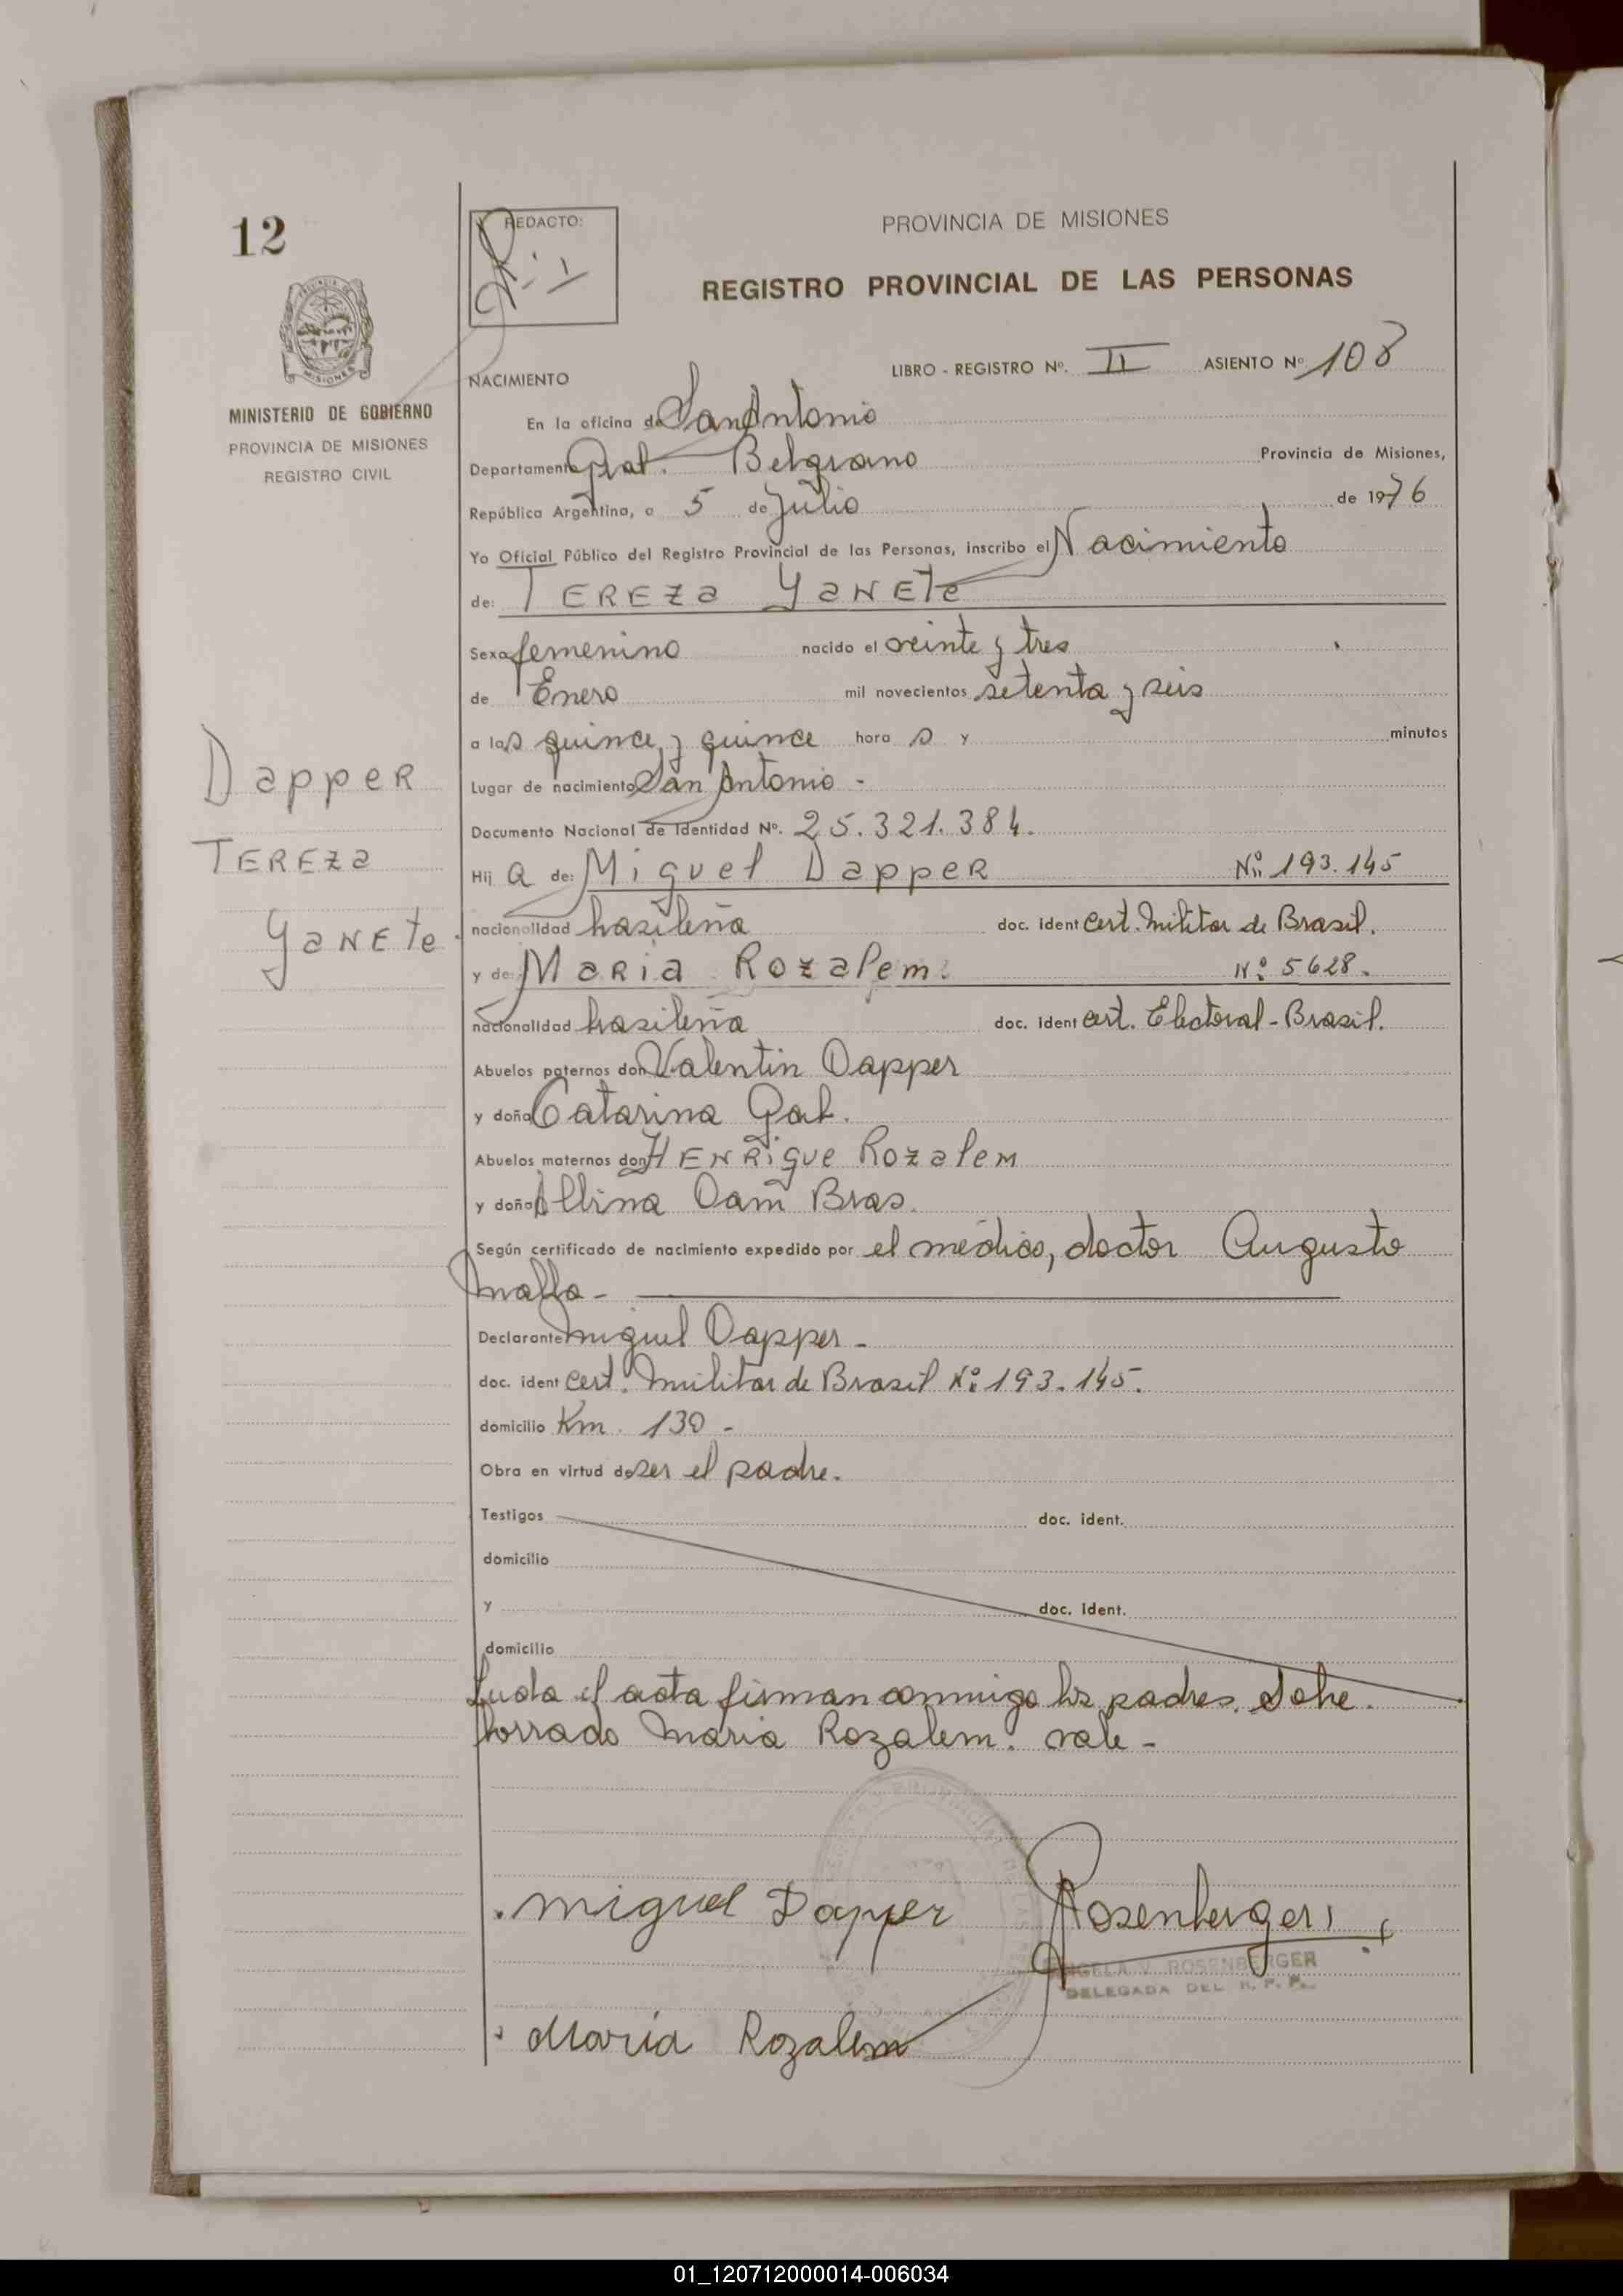 12
REDACTO:
PROVINCIA DE MISIONES
REGISTRO PROVINCIAL DE LAS PERSONAS
LIBRO - REGISTRO Nº. II ASIENTO Nº 108
MISIONES
MINISTERIO DE GOBIERNO
PROVINCIA DE MISIONES
REGISTRO CIVIL
NACIMIENTO
En la oficina de San Antonio
Departamento Gral. Belgrano Provincia de Misiones,
República Argentina, a 5 de Julio de 1976
Yo Oficial Público del Registro Provincial de las Personas, inscribo el Nacimiento
de: TEREZa YaNETe
Sexo femenino nacido el veinte y tres
de Enero mil novecientos setenta y seis
a las quince y quince hora s y minutos
Lugar de nacimiento San Antonio -
Documento Nacional de Identidad Nº. 25.321.384.
Hij a de: Miguel Dapper Nº 193.145
nacionalidad brasileña doc. ident cert. Militar de Brasil.
y de: Maria Rozalem. Nº 5628.
nacionalidad brasileña doc. ident cert. Electoral - Brasil.
Abuelos paternos don Valentin Dapper
y doña Catarina Gal.
Abuelos maternos don HENRique Rozalem
y doña Albina Dam Bras.
Según certificado de nacimiento expedido por el médico, doctor Augusto
Malla -
Declarante Miguel Dapper -
doc. ident cert. Militar de Brasil Nº 193.145.
domicilio Km. 130 -
Obra en virtud de ser el padre.
Testigos doc. ident.
domicilio
y doc. ident.
domicilio
Leida el acta firman conmigo los padres. Sobre
borrado Maria Rozalem. vale -
Dapper
TEREZa
YaNETe.
Miguel Dapper
Rosenberger
ANGELA V. ROSENBERGER
DELEGADA DEL R. P. P.
María Rozalem
01_120712000014-006034